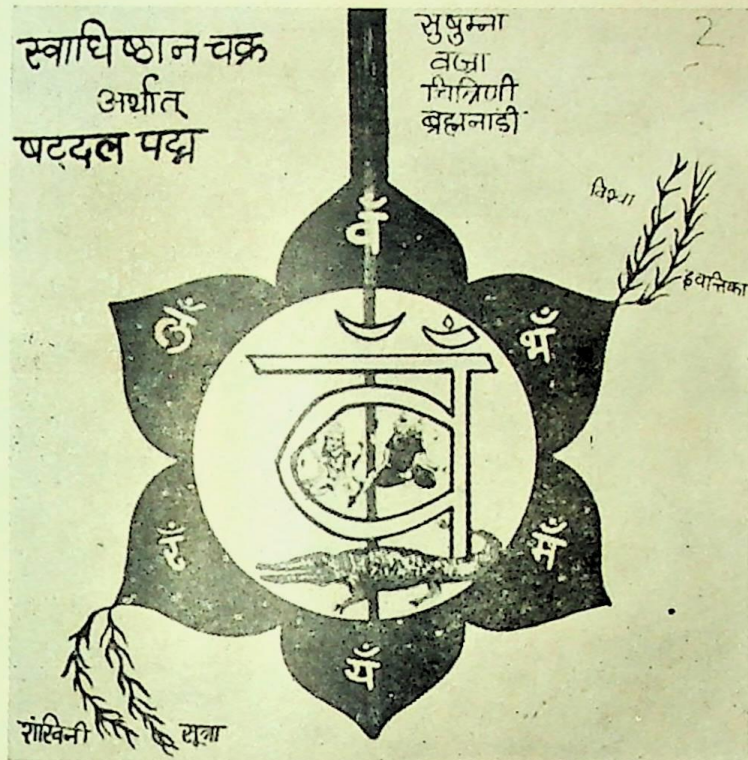 स्वाधिष्ठान चक्र
अर्थात्
षट्दल पद्म
सुषुम्ना
वज्रा
चित्रिणी
ब्रह्मनाडी
2
विश्वा
वँ
भँ
मँ
यँ
लँ
वँ
शंखिनी